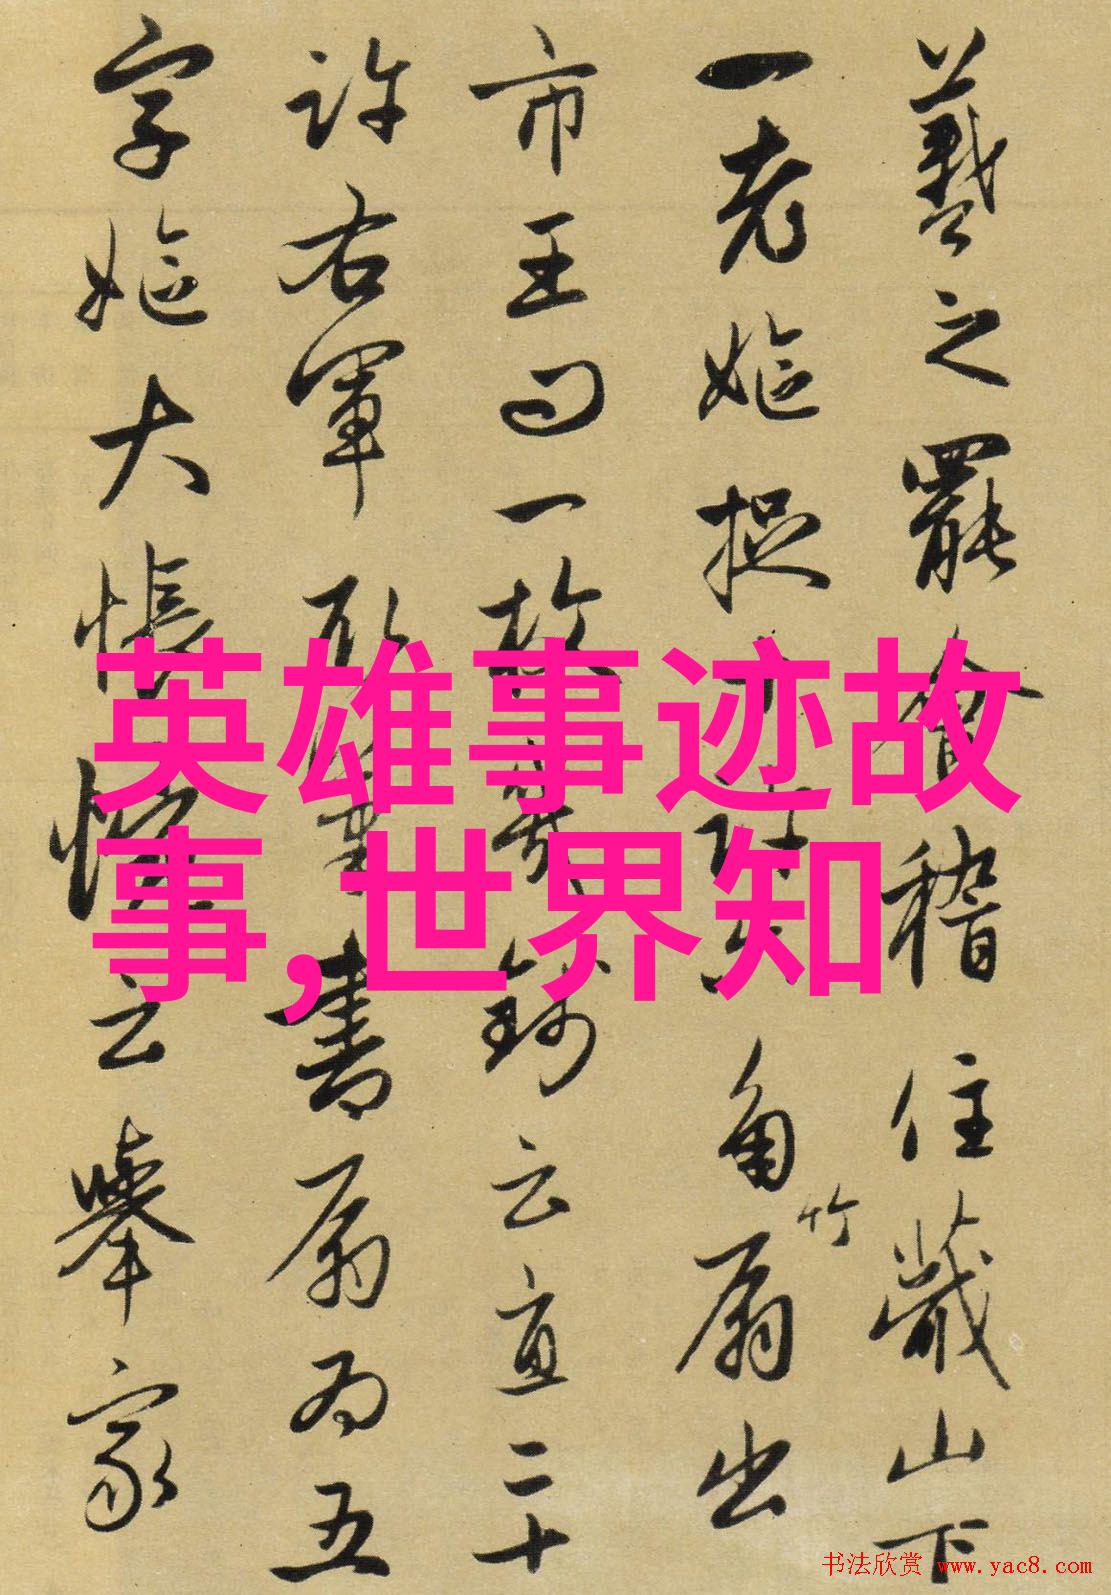 羲之罷會稽住蕺山下
一老嫗捉
角扇出
竹
市王問一枚幾錢云直二十
許右軍取筆書扇為五
字嫗大悵惋云舉家
英雄事迹故
事,世界知
书法欣赏 www.yac8.com